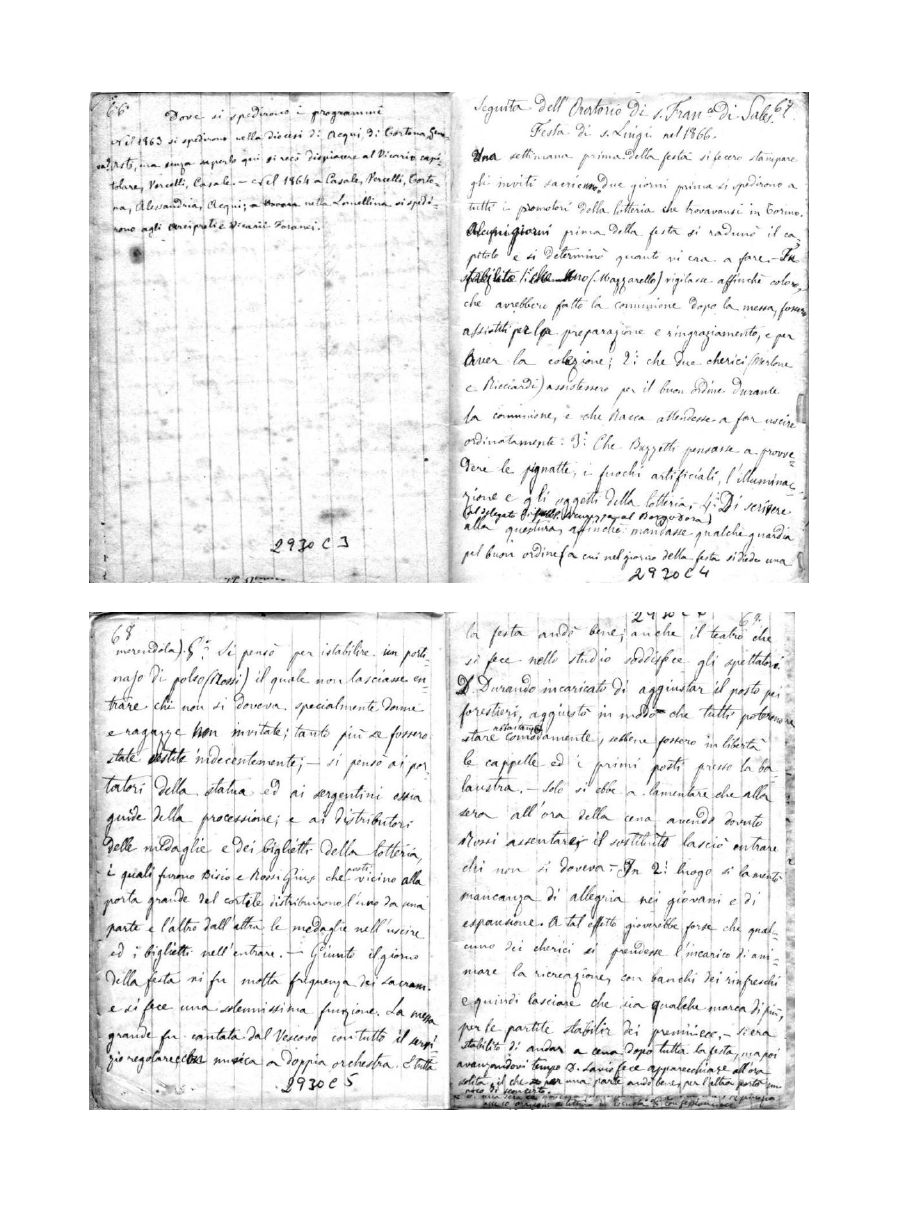 66
Dove si spedirono i programmi
Nel 1863 si spedirono nella diocesi di Acqui, di Tortona, Geno-
va, Asti, ma senza saperlo qui si recò dispiacere al Vicario capi-
tolare, Vercelli, Casale. — Nel 1864 a Casale, Vercelli, Torto-
na, Alessandria, Acqui; a Novara nella Lomellina si spedi-
rono agli Arcipreti e Vicarii Foranei.
2930 C 3
Seguita dell'Oratorio di s. Fran.co di Sales. 67
Festa di s. Luigi nel 1866.
Una settimana prima della festa si fecero stampare
gli inviti sacri. Due giorni prima si spedirono a
tutti i promotori della lotteria che trovavansi in Torino.
Alcuni giorni prima della festa si radunò il ca
pitolo e si determinò quanto vi era a fare. — Fu
stabilito 1° che uno (Mazzarello) vigilasse affinchè coloro,
che avrebbero fatto la comunione dopo la messa, fossero
assistiti per la preparazione e ringraziamento, e per
aver la colezione; 2° che due cherici (Merlone
e Ricciardi) assistessero per il buon ordine durante
la comunione, e che Racca attendesse a far uscire
ordinatamente: 3° Che Buzzetti pensasse a provve=
dere le pignatte, i fuochi artificiali, l'illumina=
zione e gli oggetti della lotteria. 4° Di scrivere
(al delegato di al Borgo dora)
alla questura, affinchè mandasse qualche guardia
pel buon ordine (a cui nel giorno della festa si diede una
2930 C 4
68
merendola). 5° Si pensò per istabilire un porti-
najo di polso (Rossi) il quale non lasciasse en-
trare chi non si doveva specialmente donne
e ragazze non invitate; tanto più se fossero
state vestite indecentemente; — si pensò ai por-
tatori della statua ed ai sergentini ossia
guide della processione; e ai distributori
delle medaglie e dei biglietti della lotteria,
i quali furono Bisio e Rossi Gius. che posti vicino alla
porta grande del cortile distribuirono l'uno da una
parte e l'altro dall'altra le medaglie nell'uscire
ed i biglietti nell'entrare. — Giunto il giorno
della festa vi fu molta frequenza dei sacram.
e si fece una solennissima funzione. La messa
grande fu cantata dal Vescovo con tutto il servi
zio regolare musica a doppia orchestra. E tutta
2930 C 5
69.
la festa andò bene; anche il teatro che
si fece nello studio soddisfece gli spettatori.
D. Durando incaricato di aggiustar il posto pei
forestieri, aggiustò in modo che tutti poterono
abbastanza
stare comodamente, sebbene fossero in libertà
le cappelle ed i primi posti presso la ba-
laustra. — Solo si ebbe a lamentare che alla
sera all'ora della cena avendo dovuto
Rossi assentarsi il sostituito lasciò entrare
chi non si doveva. — In 2° luogo si lamentò
mancanza di allegria nei giovani e di
espansione. A tal effetto gioverebbe forse che qual-
cuno dei cherici si prendesse l'incarico di ani-
mare la ricreazione, con banchi dei rinfreschi
e quindi lasciare che sia qualche marca di più,
per le partite stabilir dei premii ecc. — Si era
stabilito di andar a cena dopo tutta la festa, ma poi
avanzandovi tempo D. Savio fece apparecchiare all'ora
solita, il che per una parte andò bene, per l'altra portò un
poco di sconcerto.